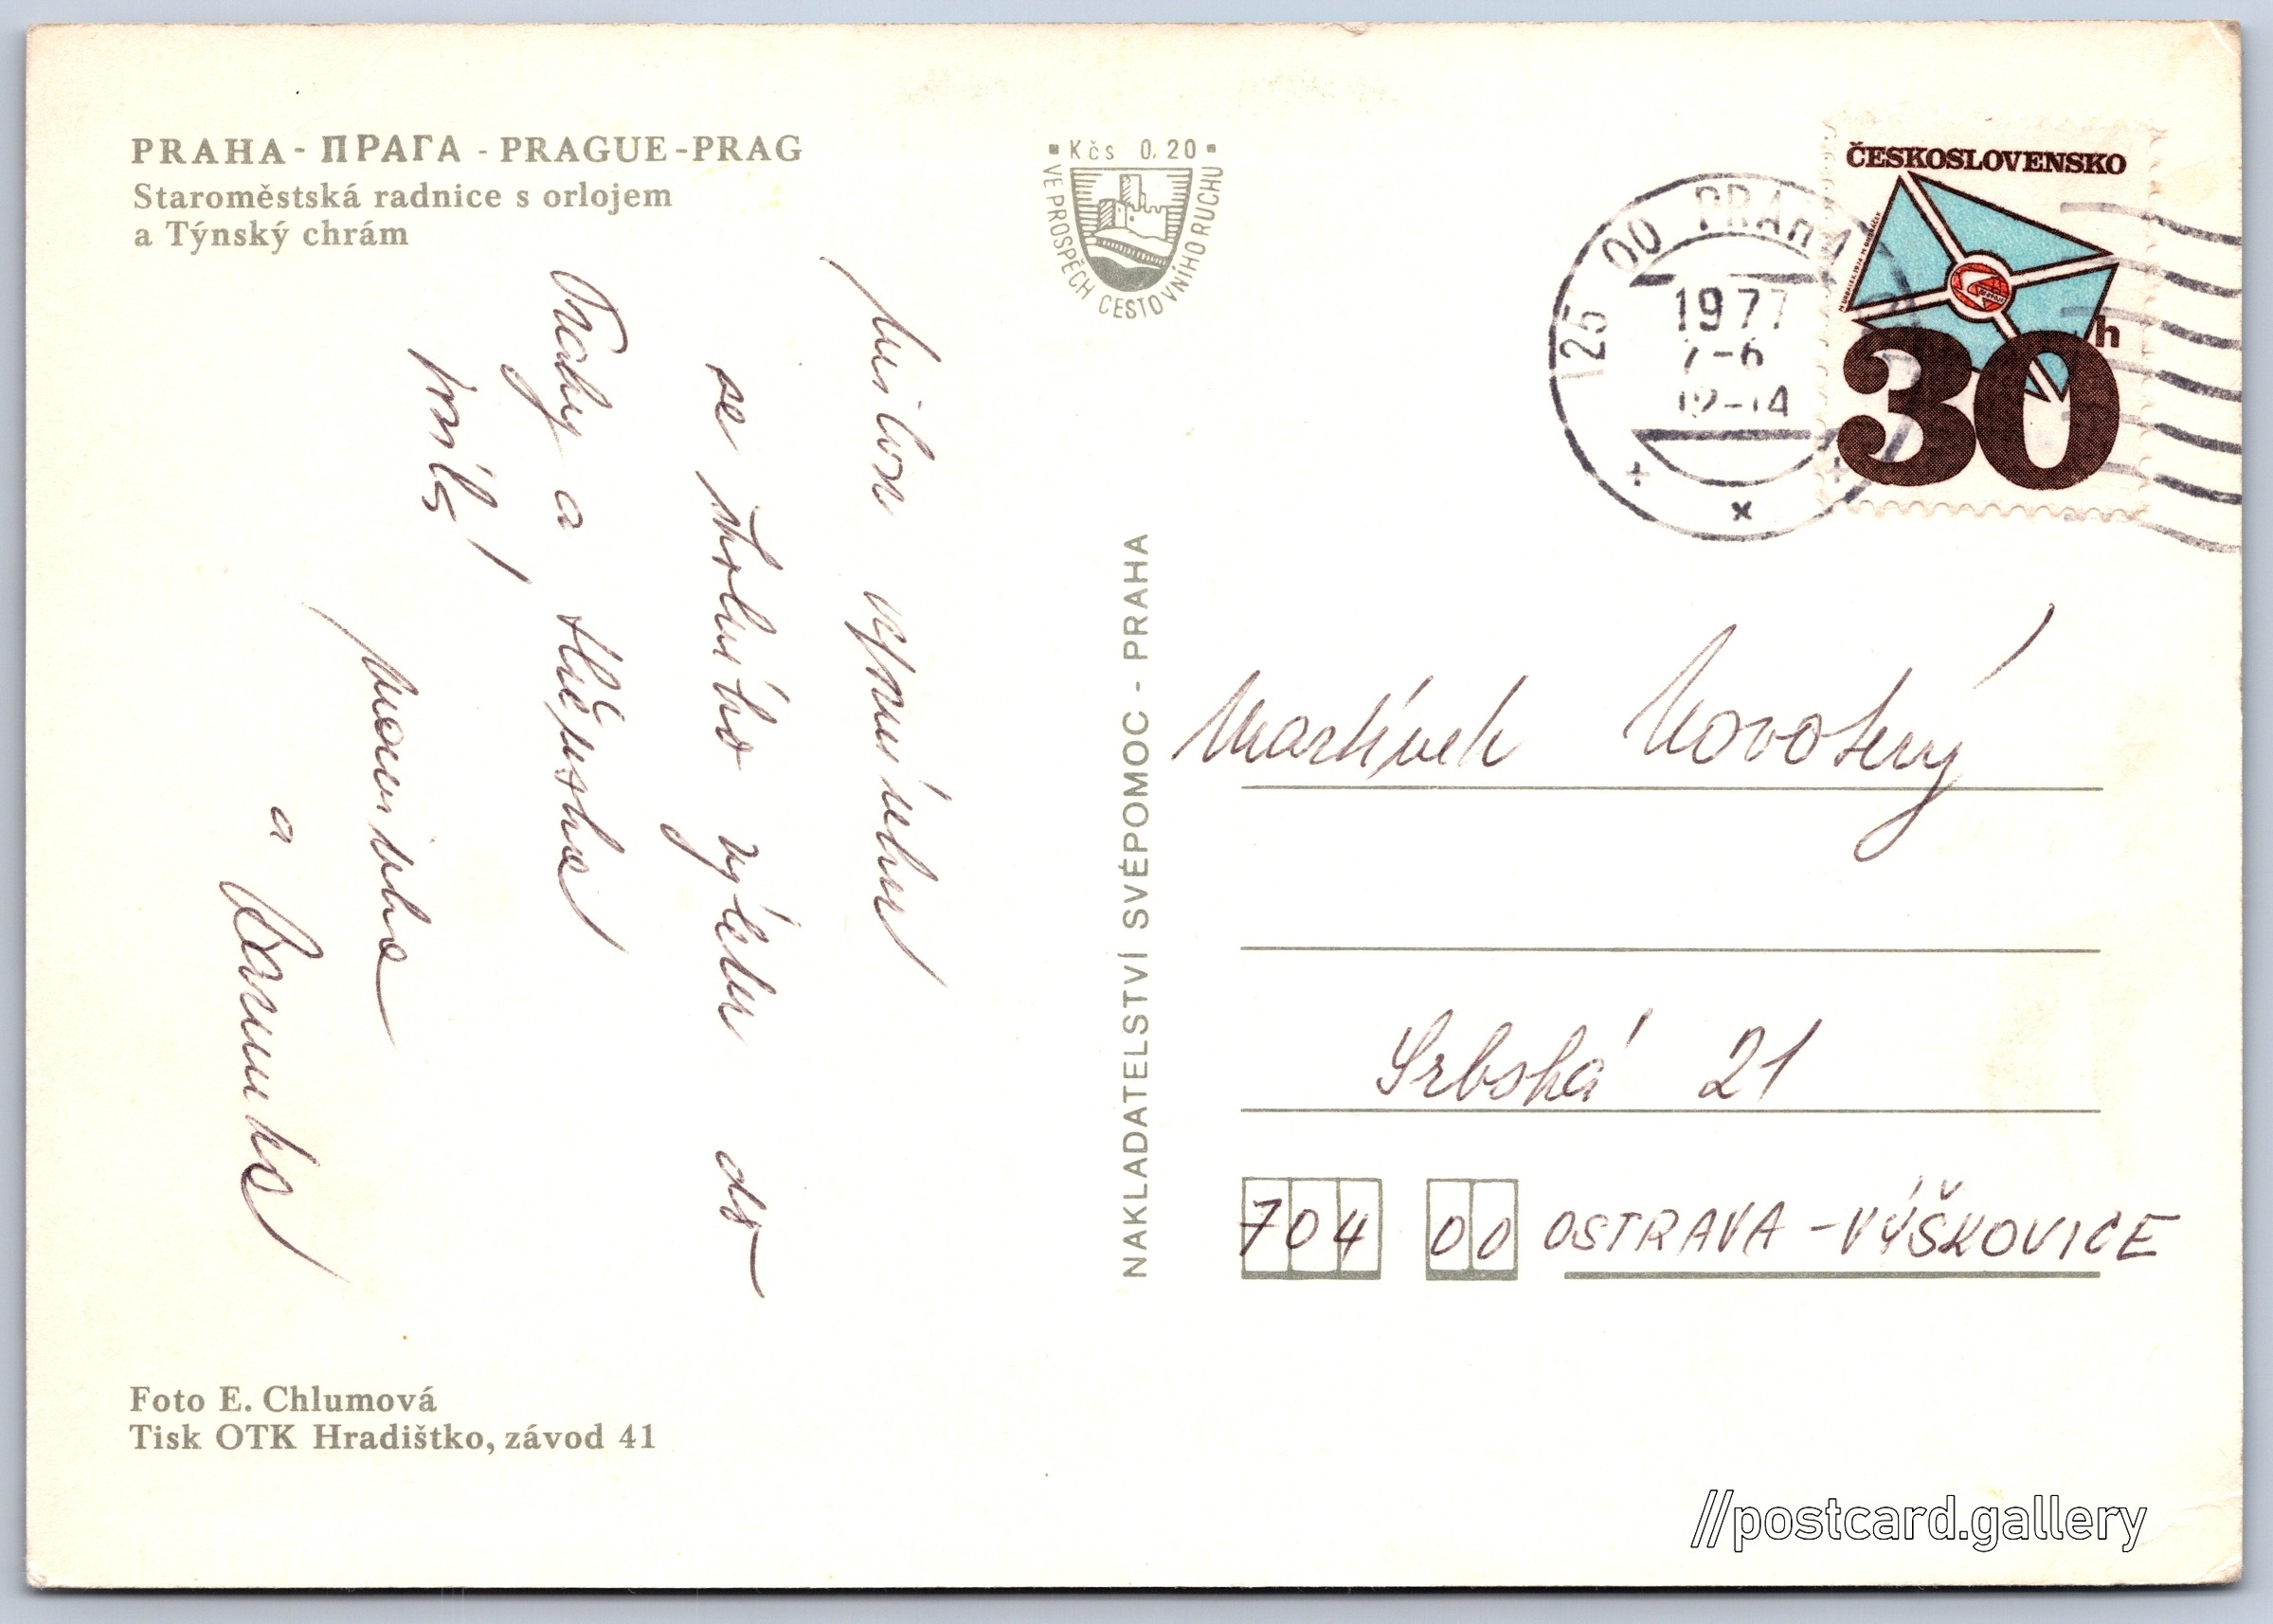 PRAHA - ПРАГА - PRAGUE - PRAG
Staroměstská radnice s orlojem
a Týnský chrám
Kčs 0,20
VE PROSPĚCH CESTOVNÍHO RUCHU
ČESKOSLOVENSKO
30 h
125 00 PRAHA
1977
7-6
12-14
milou vzpomínku
se školního výletu do
Prahy a těší se na
Vás!
maminka
a Barunka
NAKLADATELSTVÍ SVÉPOMOC - PRAHA
Martínek Novotný
Srbská 21
704 00 OSTRAVA - VÝŠKOVICE
Foto E. Chlumová
Tisk OTK Hradištko, závod 41
//postcard.gallery